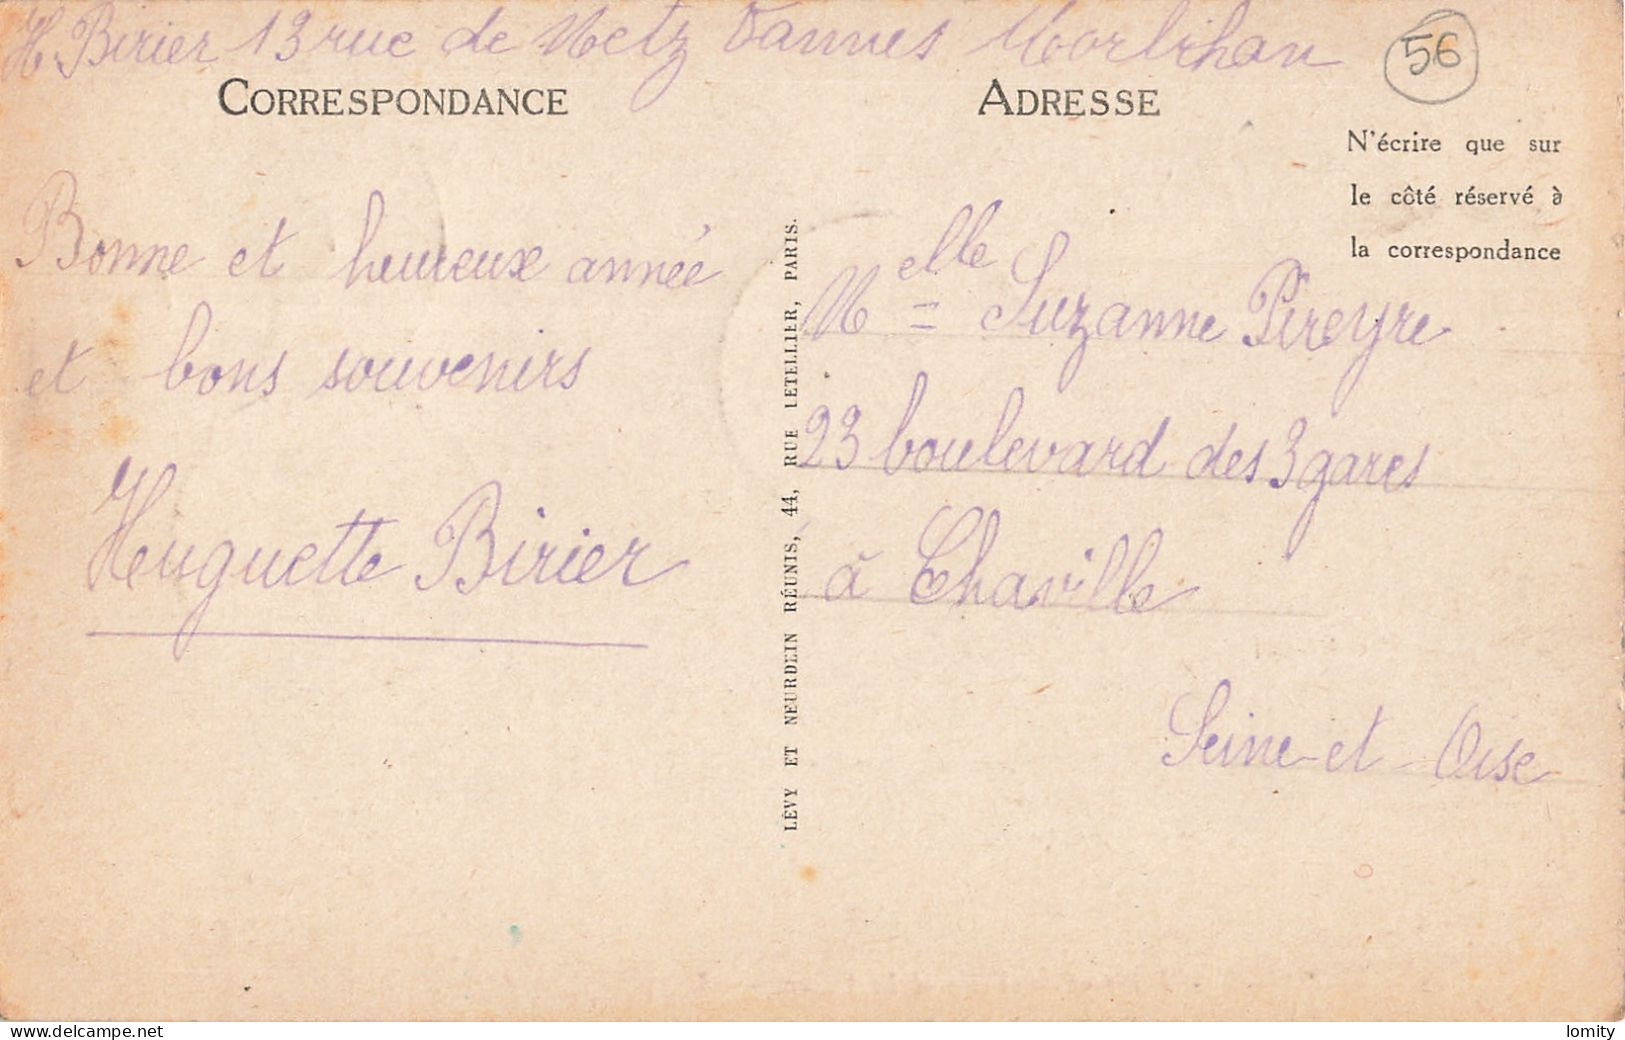 H Birier 13 rue de Metz Vannes Morbihan
56
CORRESPONDANCE
ADRESSE
N'écrire que sur
le côté réservé à
la correspondance
Bonne et heureuse année
et bons souvenirs
Huguette Birier
LÉVY ET NEURDEIN RÉUNIS, 44, RUE LETELLIER, PARIS.
Melle Suzanne Pereyre
23 boulevard des 3 gares
à Chaville
Seine-et-Oise
delcampe.net
lomity